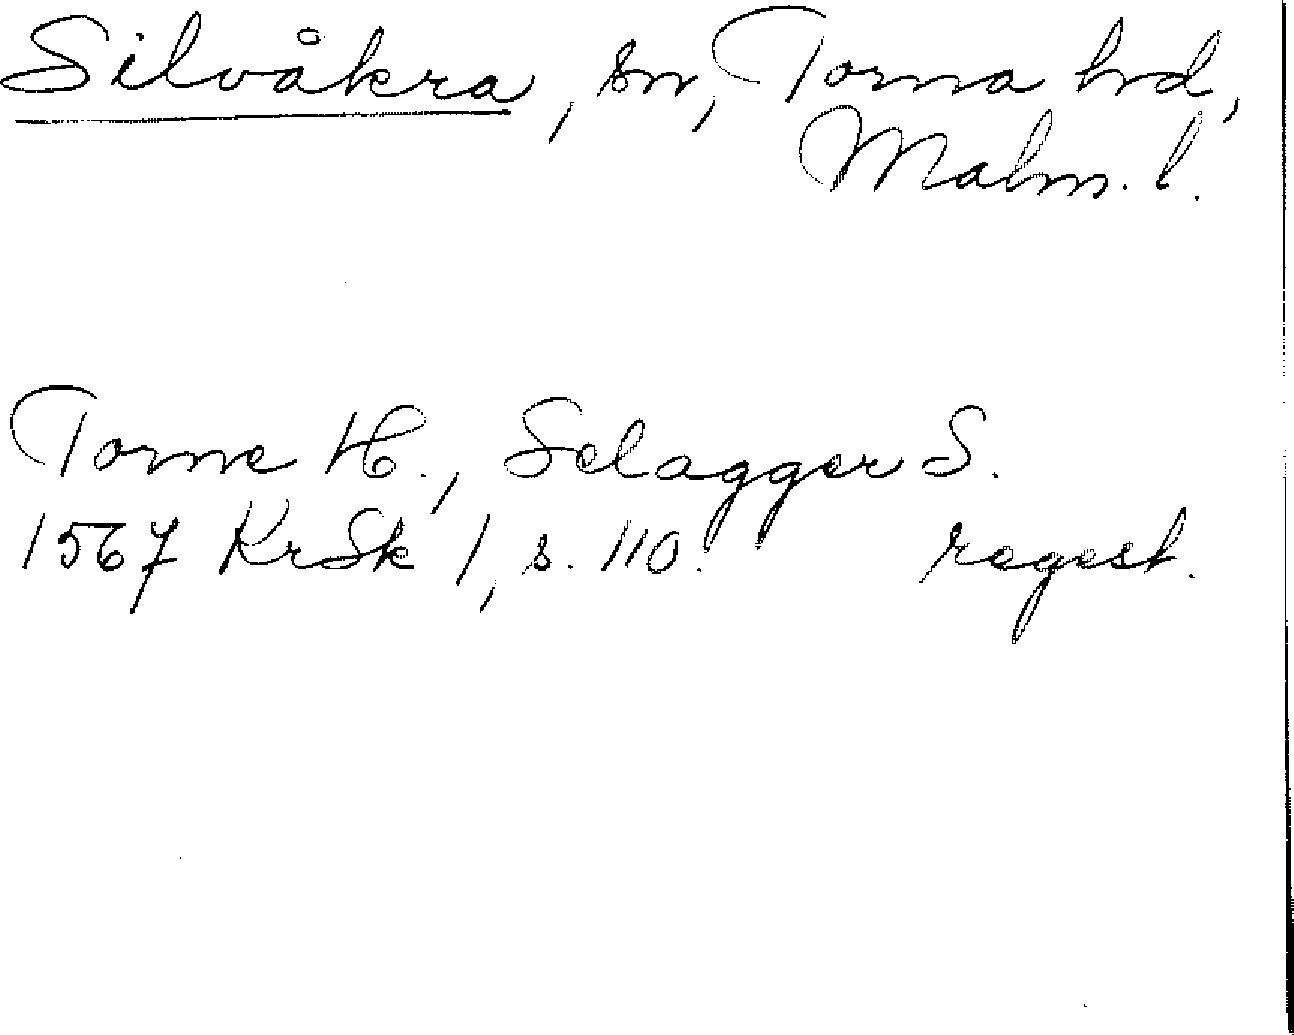 Silvåkra, sn, Torna hrd,
Malm. l.
Torne H., Selagger S.
1567 KrSk 1, s. 110. regest.